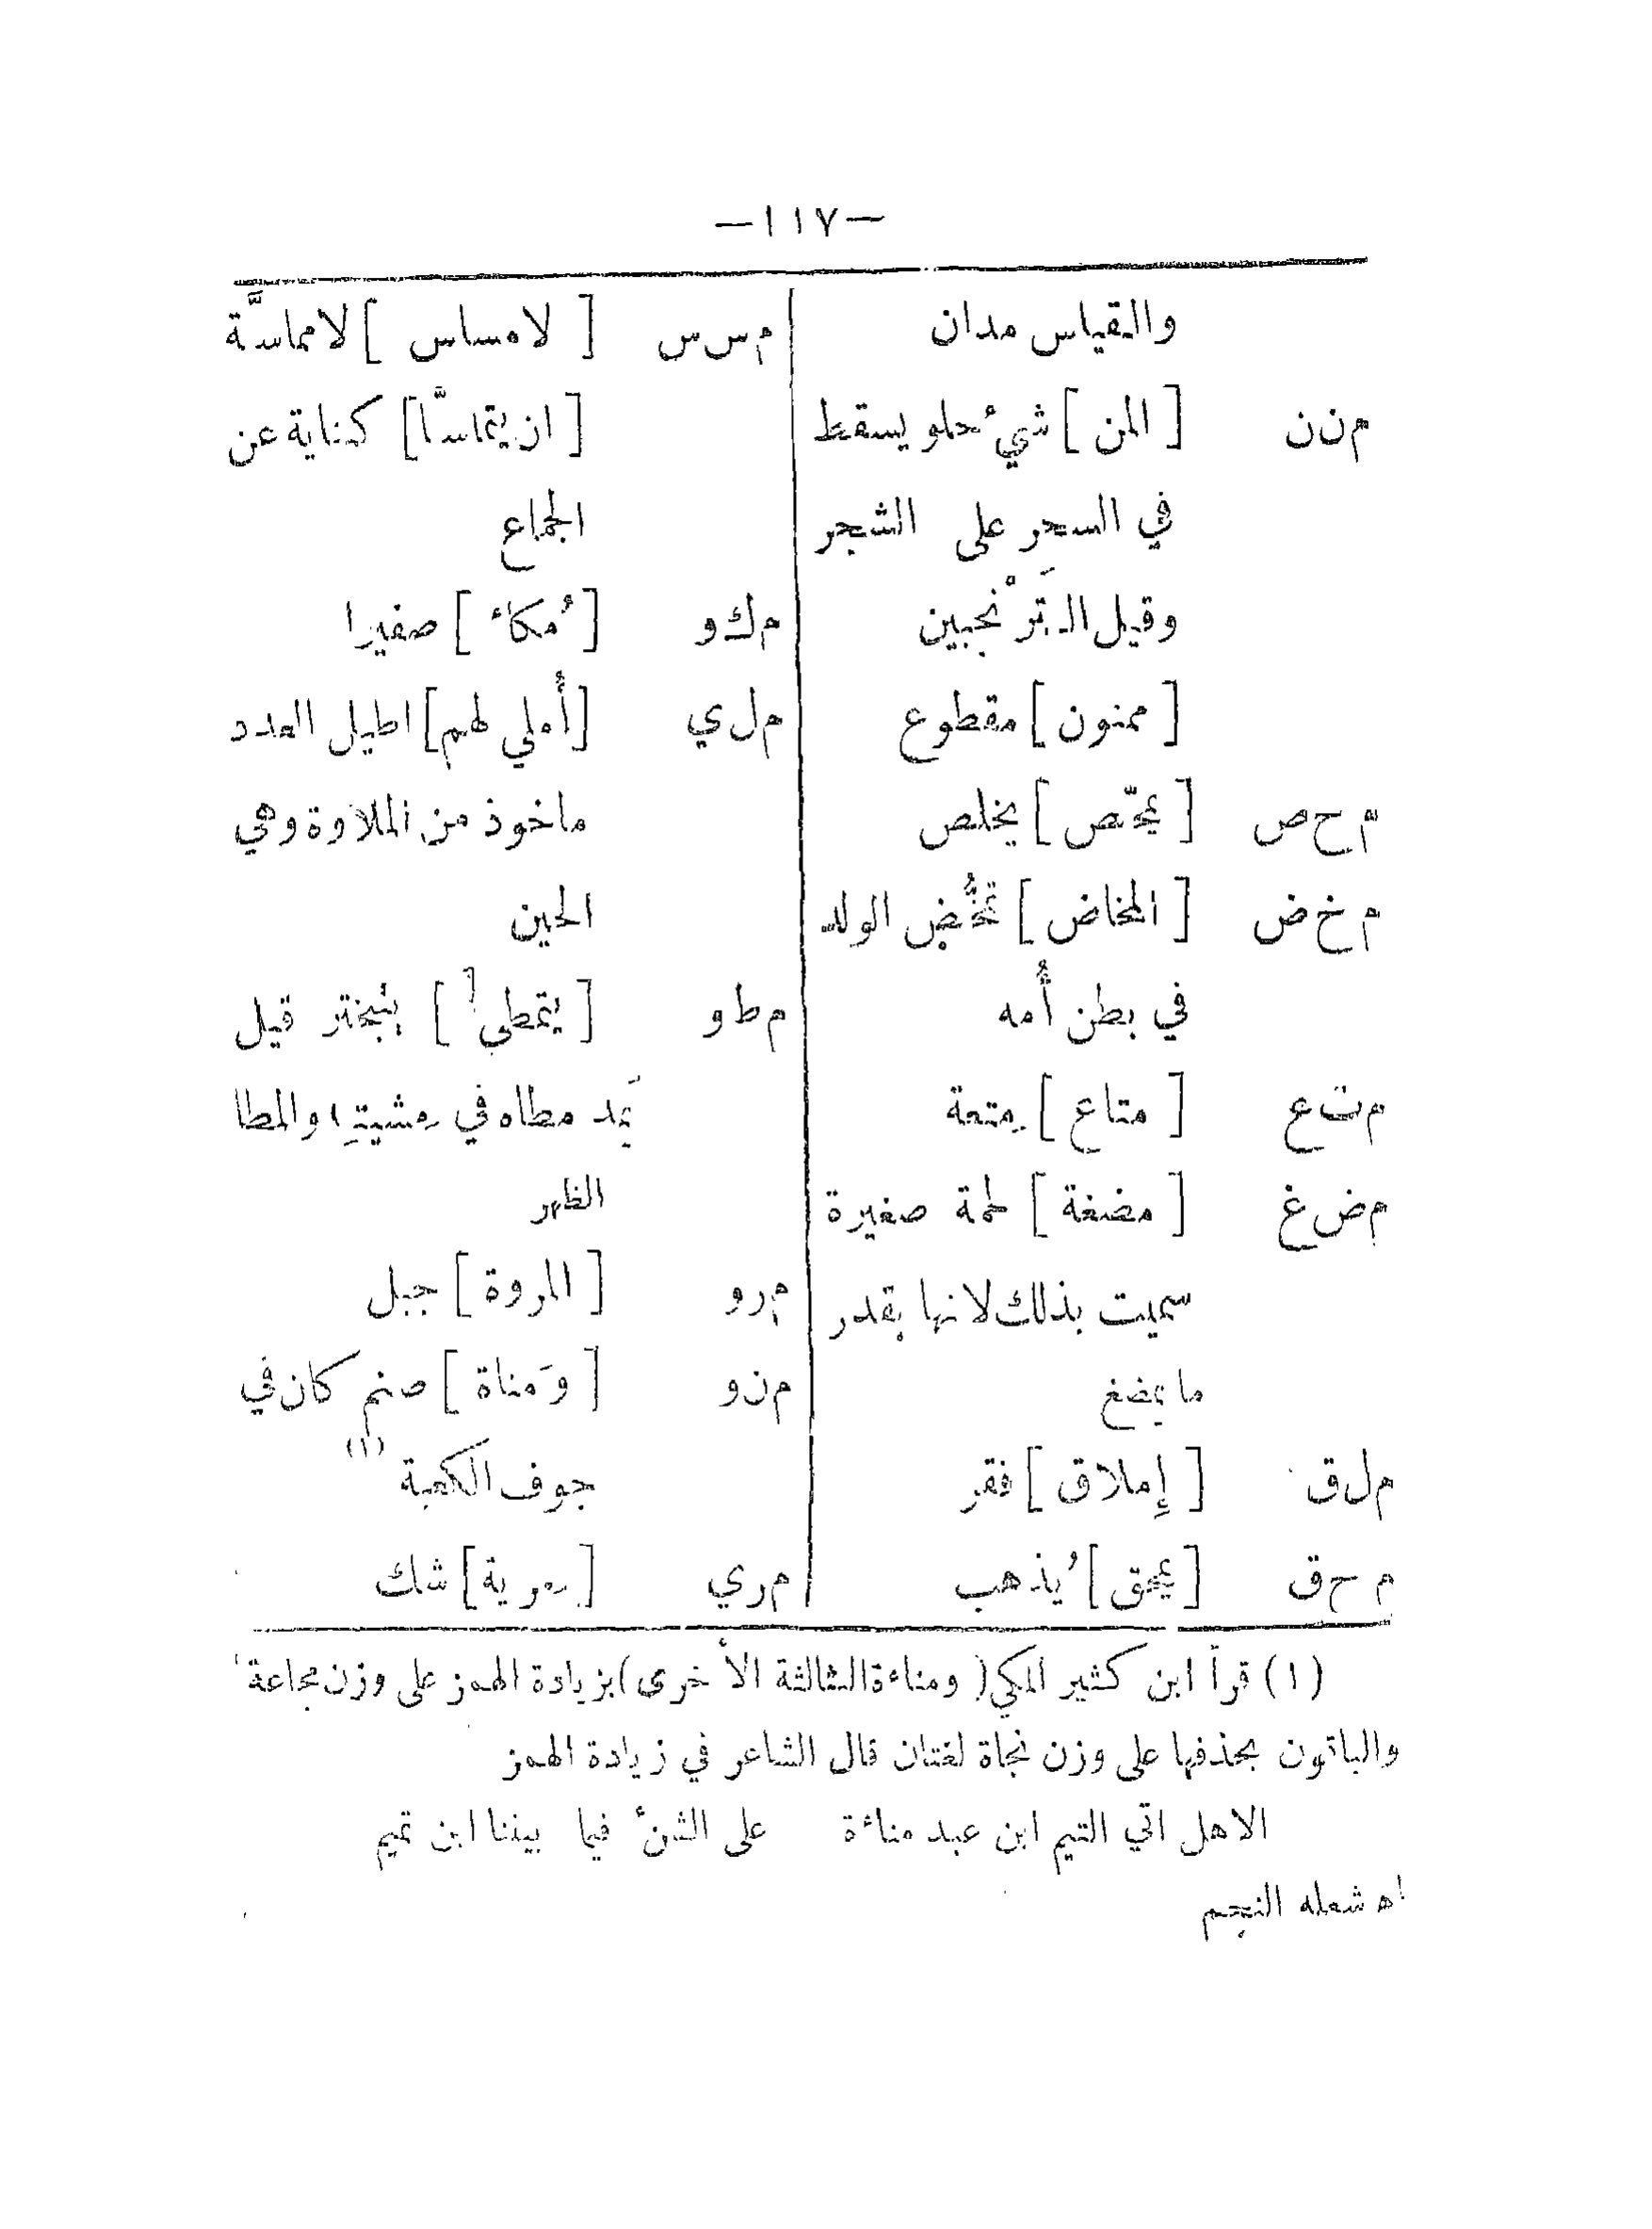 —١١٧—
والقياس مدان
م ن ن [ المن ] شيءٌ حلو يسقط
في السحر على الشجر
وقيل التَرْنجبين
[ ممنون ] مقطوع
م ح ص [ يمحّص ] يخلص
م خ ض [ المخاض ] تمخُّض الولد
في بطن أُمه
م ت ع [ متاع ] مِتعة
م ض غ [ مضغة ] لحمة صغيرة
سميت بذلك لانها بقدر
ما يمضغ
م ل ق [ إِملاق ] فقر
م ح ق [ يمحق ] يُذهب
م س س [ لا مساس ] لا مماسَّة
[ ان يتماسَّا ] كناية عن
الجماع
م ك و [ مُكاء ] صفيرا
م ل ي [ أُملي لهم ] اطيل المدد
ماخوذ من الملاوة وهي
الحين
م ط و [ يتمطى ] يتبختر قيل
يَمد مطاه في مِشيتِه والمطا
الظهر
م ر و [ المروة ] جبل
م ن و [ وَمناة ] صنم كان في
جوف الكعبة (١)
م ر ي [ مِرية ] شك
(١) قرأ ابن كثير المكي ( ومناءة الثالثة الأخرى ) بزيادة الهمز على وزن مجاعة
والباقون بحذفها على وزن نجاة لغتان قال الشاعر في زيادة الهمز
الاهل اتي التيم ابن عبد مناءة على الشنءِ فيما بيننا ابن تميم
اه شعله النجم